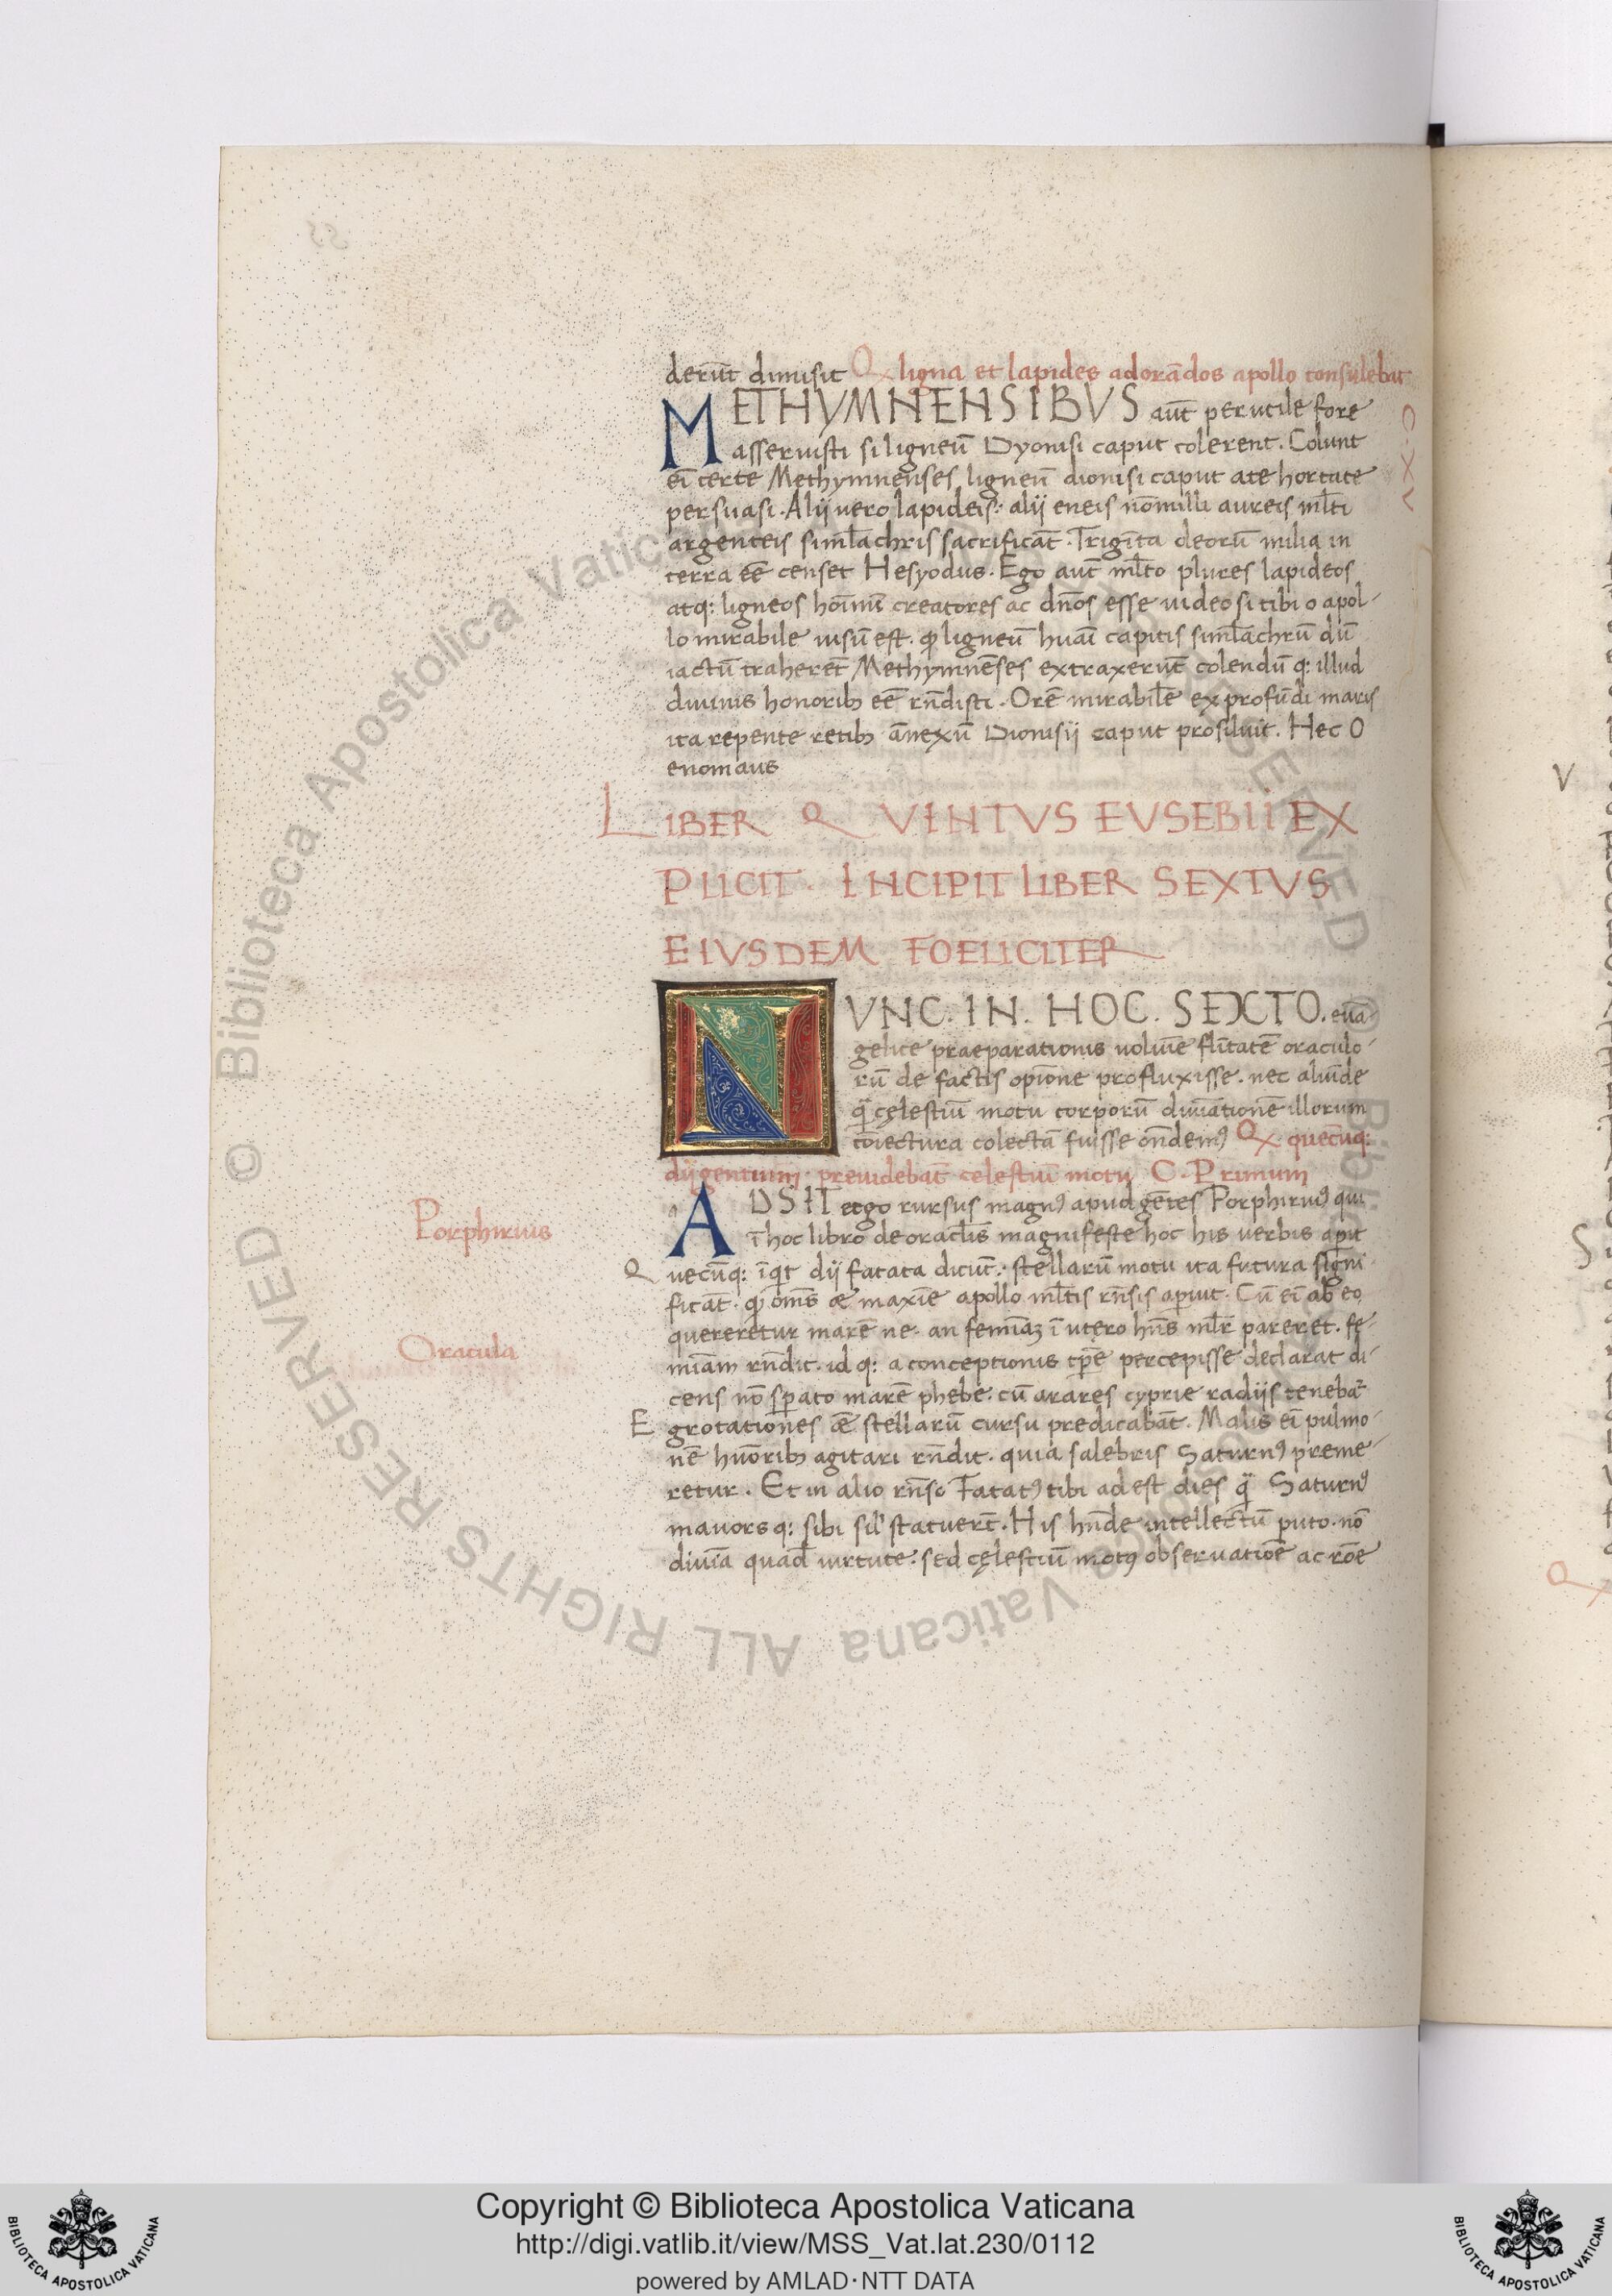 derūt dimisit Qx ligna et lapides adorādos apollo consulebat
METHYMNENSIBVS aūt perutile fore
asseruisti si ligneū Dyonisi caput colerent. Colunt
C
X
V
eī certe Methymnenses ligneū dionisi caput ate hortate
persuasi. Alij uero lapideis: alij eneis nōnulli aureis ml̄ti
argenteis siml̄achris sacrificāt. Trigīta deorū milia in
terra eē censet Hesyodus. Ego aūt ml̄to plures lapideos
atq: ligneos hoīum creatores ac dn̄os esse uideo si tibi o apol-
lo mirabile uisū est. ꝙ ligneū huāi capitis siml̄achrū dū
iactū traherēt Methymnēses extraxerūt colendū q: illud
diuinis honoribꝫ eē rn̄disti. Orē mirabilē ex profūdi maris
ita repente retibꝫ ānexū Dionisij caput prosiluit. Hec O
enomaus
LIBER QVINTVS EVSEBII EX
PLICIT. INCIPIT LIBER SEXTVS
EIVSDEM FOELICITER
NVNC. IN. HOC. SEXTO. euā-
gelice praeparationis uoluīe flītatē oraculo-
rū de factis opīone profluxisse. nec aliūde
q̄ cęlestiū motu corporū diuīationē illorum
cōiectura colectā fuisse on̄demꝰ Qx quecūq:
dij gentium preuidebāt celestiū motu C. Primum
ADSIT ergo rursus magnꝰ apud gētes Porphiriuꝰ qui
Porphirius
ī hoc libro de oracl̄is magnifeste hoc his uerbis apit
Quecūq: īqt dij fatata dicūt: stellarū motu ita futura signi-
ficāt. ꝙ om̄s æ maxīe apollo ml̄tis rn̄sis apuit. Cū eī ab eo
quereretur marē ne. an femīaꝫ ī utero hn̄s ml̄r pareret. fę-
Oracula
mīam rn̄dit. id q: a conceptionis tp̄e percepisse declarat di-
cens nō spato marē phebe. cū arares cyprie radijs tenebat̄
Egrotationes æ stellarū cursu predicabāt. Malis eī pulmo-
nē huōribꝫ agitari rn̄dit. quia salebris Saturnꝰ preme-
retur. Et in alio rn̄so Fatatꝰ tibi adest dies q̄ Saturnꝰ
mauors q: sibi sil' statuert̄. His hn̄de intellectū puto. nō
diuīa quad̄ uirtute. sed cęlestiū motꝰ obseruatiōe ac rōe
Copyright © Biblioteca Apostolica Vaticana
http://digi.vatlib.it/view/MSS_Vat.lat.230/0112
powered by AMLAD·NTT DATA